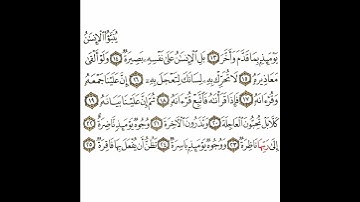 يُنَبَّؤُا۟ ٱلْإِنسَٰنُ
يَوْمَئِذٍۭ بِمَا قَدَّمَ وَأَخَّرَ ١٣ بَلِ ٱلْإِنسَٰنُ عَلَىٰ نَفْسِهِۦ بَصِيرَةٌ ١٤ وَلَوْ أَلْقَىٰ
مَعَاذِيرَهُۥ ١٥ لَا تُحَرِّكْ بِهِۦ لِسَانَكَ لِتَعْجَلَ بِهِۦٓ ١٦ إِنَّ عَلَيْنَا جَمْعَهُۥ
وَقُرْءَانَهُۥ ١٧ فَإِذَا قَرَأْنَٰهُ فَٱتَّبِعْ قُرْءَانَهُۥ ١٨ ثُمَّ إِنَّ عَلَيْنَا بَيَانَهُۥ ١٩
كَلَّا بَلْ تُحِبُّونَ ٱلْعَاجِلَةَ ٢٠ وَتَذَرُونَ ٱلْءَاخِرَةَ ٢١ وُجُوهٌ يَوْمَئِذٍ نَّاضِرَةٌ ٢٢
إِلَىٰ رَبِّهَا نَاظِرَةٌ ٢٣ وَوُجُوهٌ يَوْمَئِذٍۭ بَاسِرَةٌ ٢٤ تَظُنُّ أَن يُفْعَلَ بِهَا فَاقِرَةٌ ٢٥